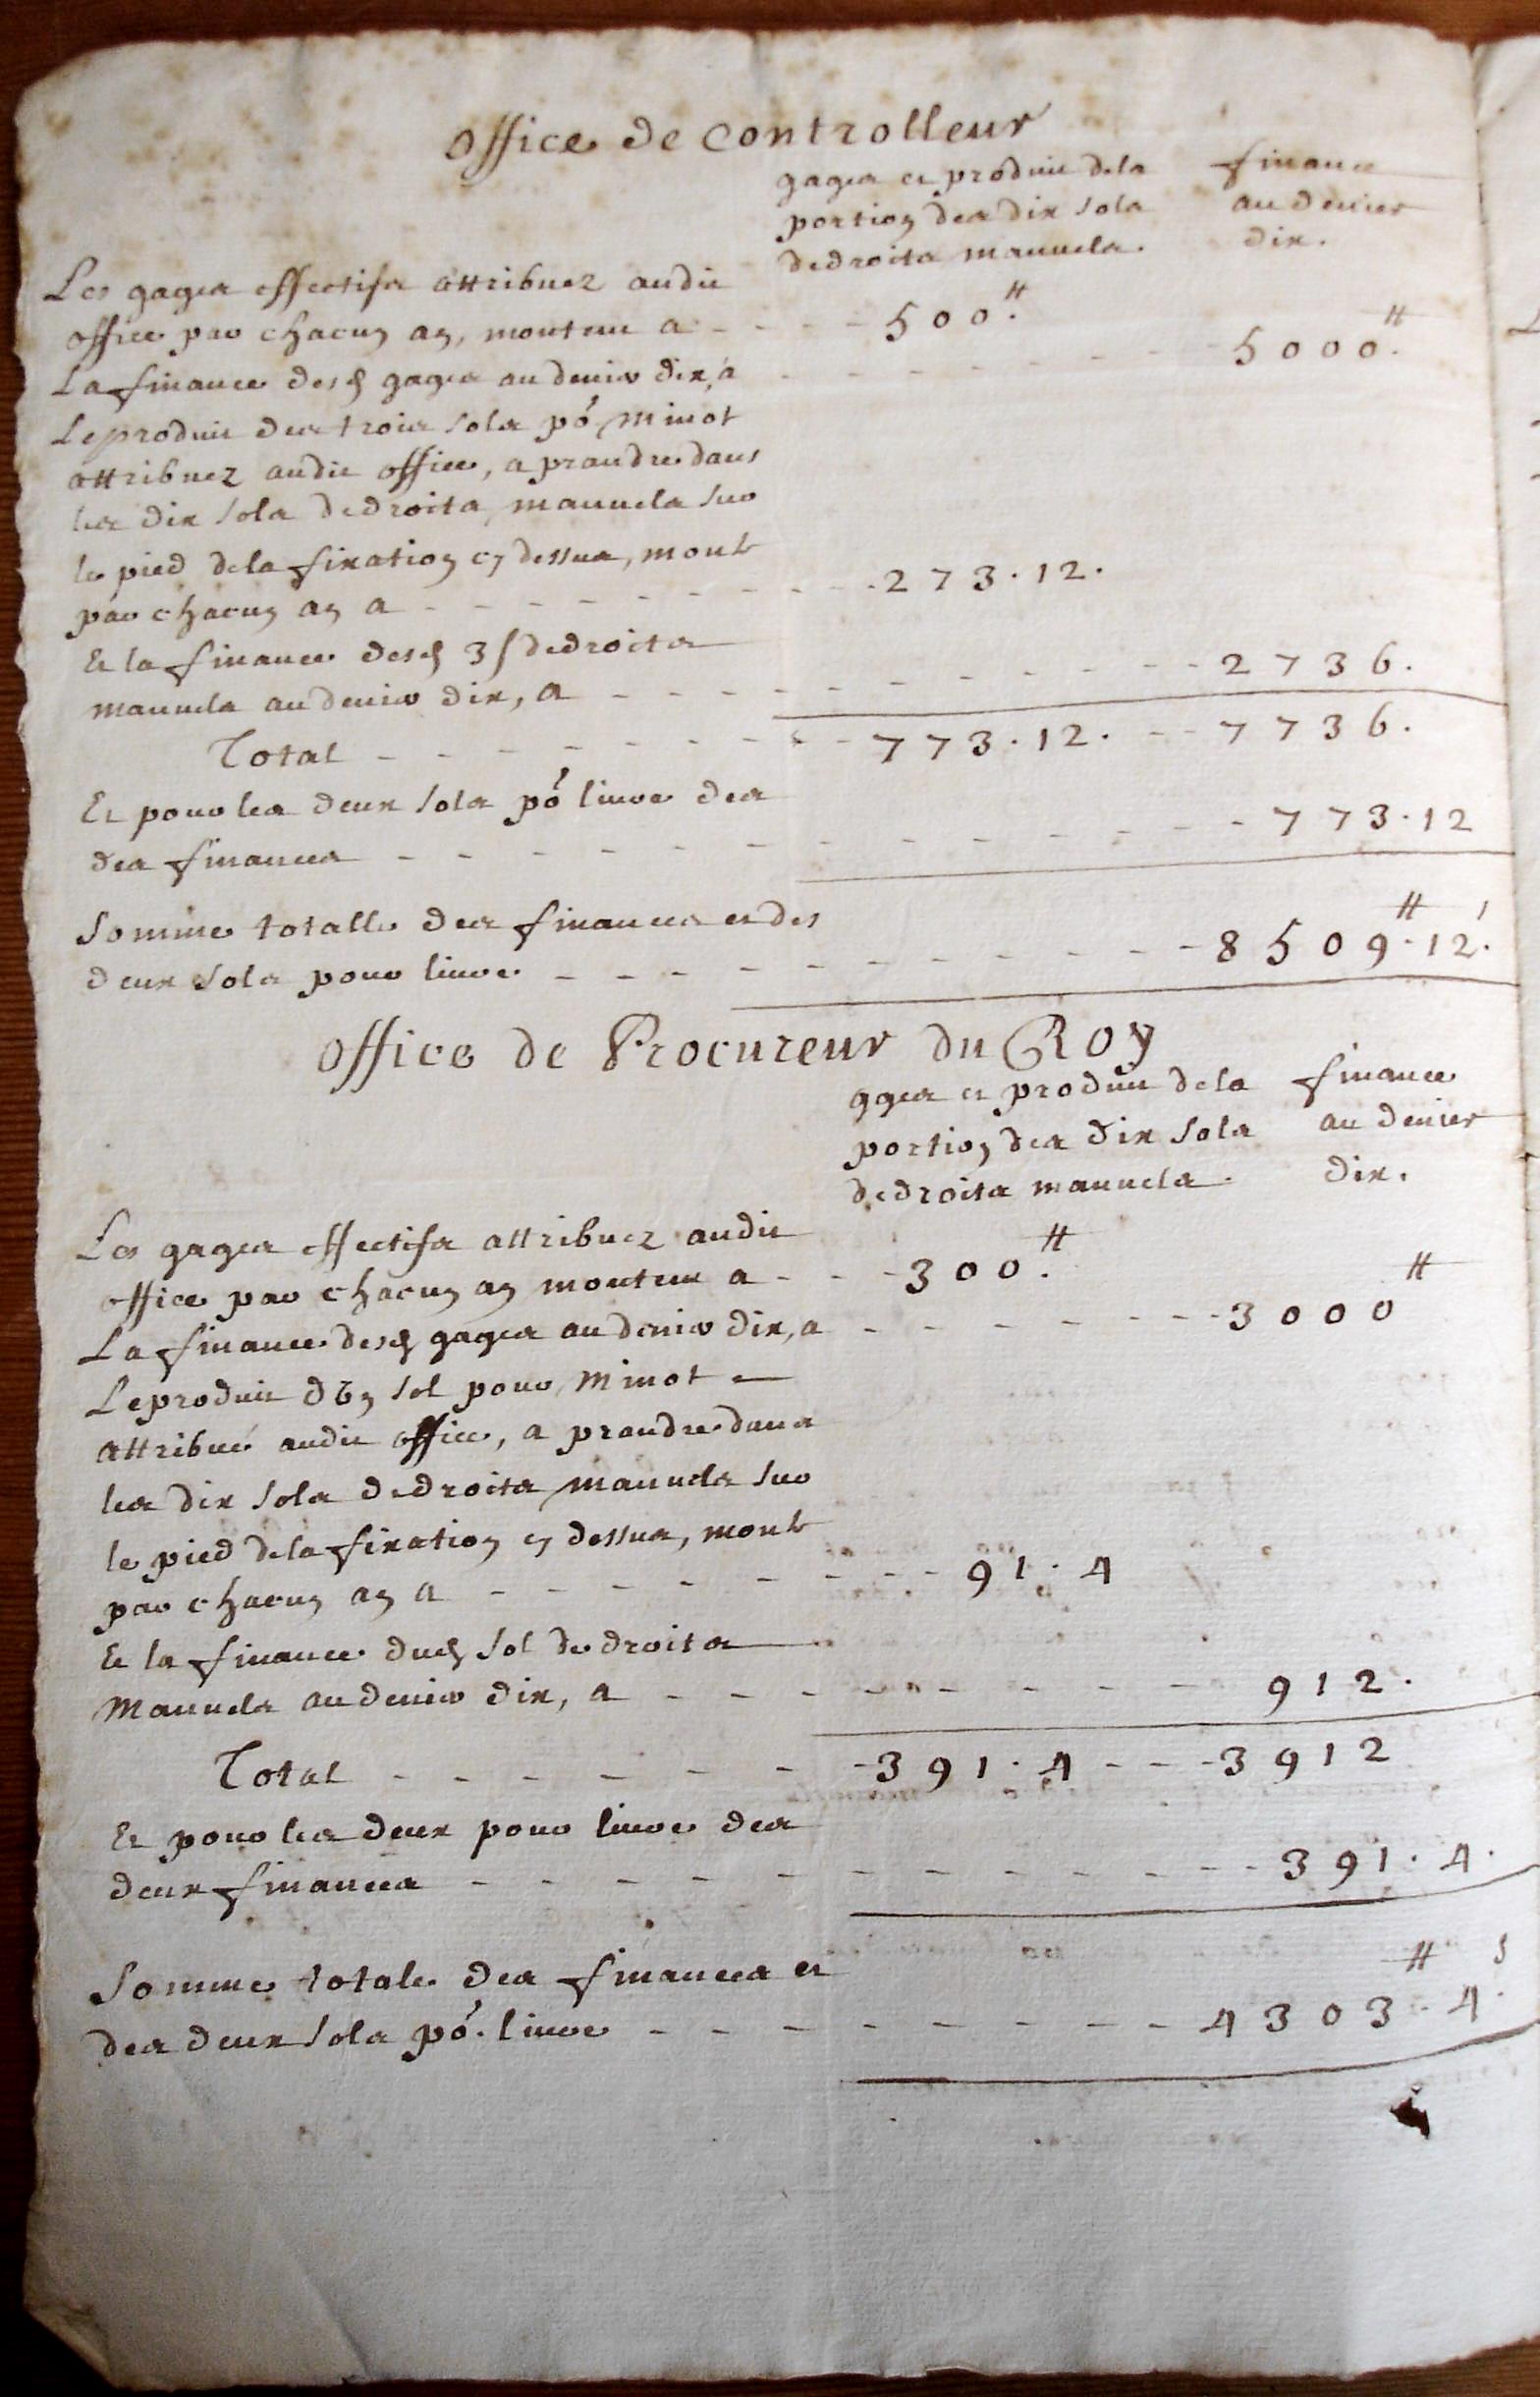 Office de Controlleur
gages et produit de la
portion des dix sols
de droits manuels.
finance
au denier
dix.
Les gages effectifs attribuez audit
office par chacun an, montent a - - - 500.#
La finance desd gages au denier dix, a - - - - - - - 5000.#
Le produit des trois sols po.r Minot
attribuez audit office, a prandre dans
les dix sols de droits manuels sur
le pied de la fixation cy dessus, monte
par chacun an a - - - - - - - - 273.12.
Et la finance desd 3 s de droits
manuels au denier dix, a - - - - - - - - - - 2736.
Total - - - - - - - - 773.12. - - 7736.
Et pour les deux sols po.r livre des
des finances - - - - - - - - - - - - - 773.12
Somme totalle des finances et des
deux sols pour livre - - - - - - - - - - 8509#.12s.
Office de Procureur du Roy
gges et produit de la
portion des dix sols
de droits manuels.
finance
au denier
dix.
Les gages effectifs attribuez audit
office par chacun an montent a - - - 300.#
La finance desd gages au denier dix, a - - - - - - - 3000#
Le produit d'vn sol pour Minot
attribué audit office, a prandre dans
les dix sols de droits manuels sur
le pied de la fixation cy dessus, monte
par chacun an a - - - - - - - - 91.4
Et la finance dud sol de droits
Manuels au denier dix, a - - - - - - - - - - 912.
Total - - - - - - - - 391.4 - - - 3912
Et pour les deux pour livre des
deux finances - - - - - - - - - - - - 391.4.
Somme totale des finances et
des deux sols po.r livre - - - - - - - - - 4303#.4s.